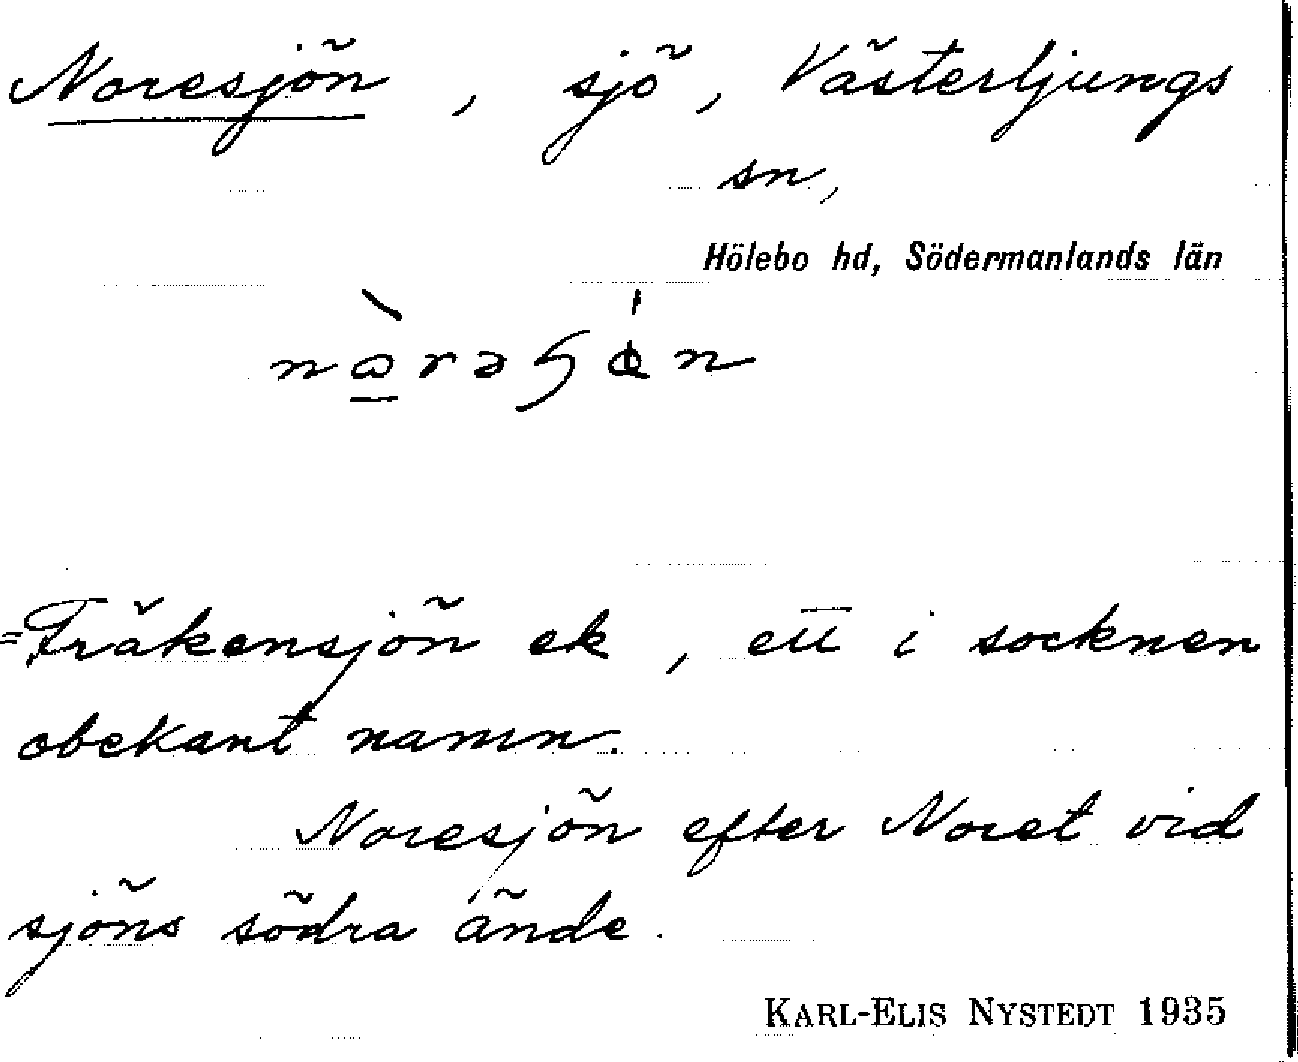 Noresjön, sjö, Västerljungs
sn,
Hölebo hd, Södermanlands län
=Fräkensjön ek, ett i socknen
obekant namn.
Noresjön efter Noret vid
sjöns södra ände.
KARL-ELIS NYSTEDT 1935